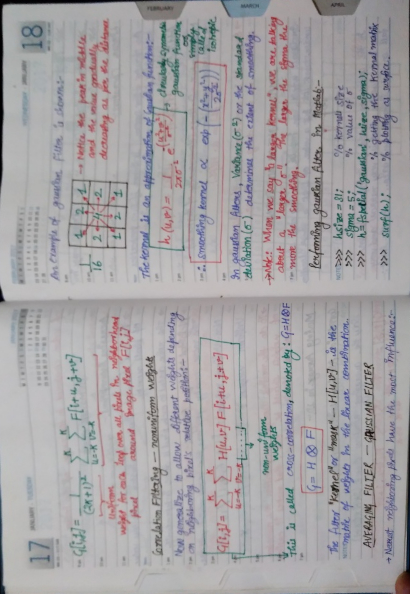 17
JANUARY
G[i,j] = 1/(2k+1)² Σ(u=-k to k) Σ(v=-k to k) F[i+u, j+v]
Uniform
weight for each
pixel
loop over all pixels in neighborhood
around image pixel F[i,j]
Correlation Filtering — nonuniform weights
Now generalize to allow different weights depending
on neighboring pixel's relative position:-
G[i,j] = Σ(u=-k to k) Σ(v=-k to k) H[u,v] F[i+u, j+v]
non-uniform
weights
This is called cross-correlation, denoted by: G=H⊗F
G = H ⊗ F
The filter "kernel" or "mask" — H[u,v] — is the
matrix of weights in the linear combination.
AVERAGING FILTER — GAUSSIAN FILTER
→ Nearest neighboring pixels have the most influence:-
FEBRUARY
MARCH
APRIL
18
JANUARY
An example of gaussian filter is shown:-
1/16
1 2 1
2 4 2
1 2 1
→ Notice the peak in middle
and the value gradually
decreasing as per the distance
The kernel is an approximation of gaussian function:-
h(u,v) = 1/2πσ² e^-(u²+v²)/2σ²
→ circularly symmetric
gaussian function
or
called
isotropic
∴ smoothing kernel ∝ exp(-(x²+y²)/2σ²)
In gaussian filters, Variance(σ²) or the standard
deviation(σ) determines the extent of smoothing.
→ Note: When we say "a larger kernel", we are talking
about a "larger σ". The larger the sigma the
more the smoothing.
Performing gaussian filter in Matlab:-
>>> hsize = 31; % kernel size
>>> sigma = 5; % value of σ
>>> h = fspecial('gaussian', hsize, sigma); % getting the kernel matrix
>>> surf(h); % plotting as surface.